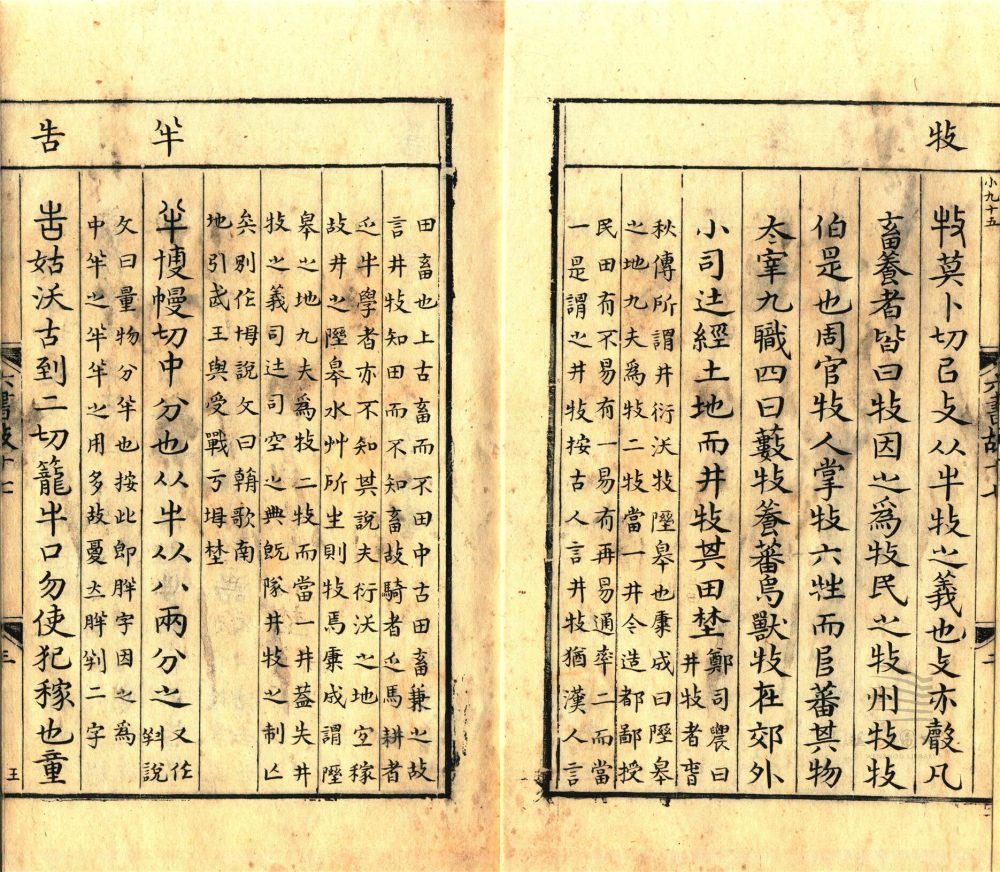 牧
小九十五
牧莫卜切㠯攴从牛牧之義也攴亦聲凡
畜養者皆曰牧因之爲牧民之牧州牧牧
伯是也周官牧人掌牧六牲而𨸏蕃其物
太宰九職四曰藪牧養蕃鳥獸牧在郊外
小司辻經土地而井牧其田埜鄭司農曰
井牧者春
秋傳所謂井衍沃牧隰皋也康成曰隰皋
之地九夫爲牧二牧當一井今造都鄙授
民田有不易有一易有再易通率二而當
一是謂之井牧按古人言井牧猶漢人言
六書故十七
二
半
告
田畜也上古畜而不田中古田畜兼之故
言井牧知田而不知畜故騎者乏馬耕者
乏牛學者亦不知其說夫衍沃之地空稼
故井之隰皋水艸所生則牧馬康成謂隰
皋之地九夫爲牧二牧而當一井葢失井
牧之義司辻司空之典旣隊井牧之制亾
矣別作坶說文曰朝歌南
地引武王與受戰亏坶埜
半博幔切中分也从牛从八兩分之又作
㪵說
文曰量物分半也按此卽胖字因之爲
中半之半半之用多故憂去胖㪵二字
告姑沃古到二切籠牛口勿使犯稼也童
六書故十七
三
王